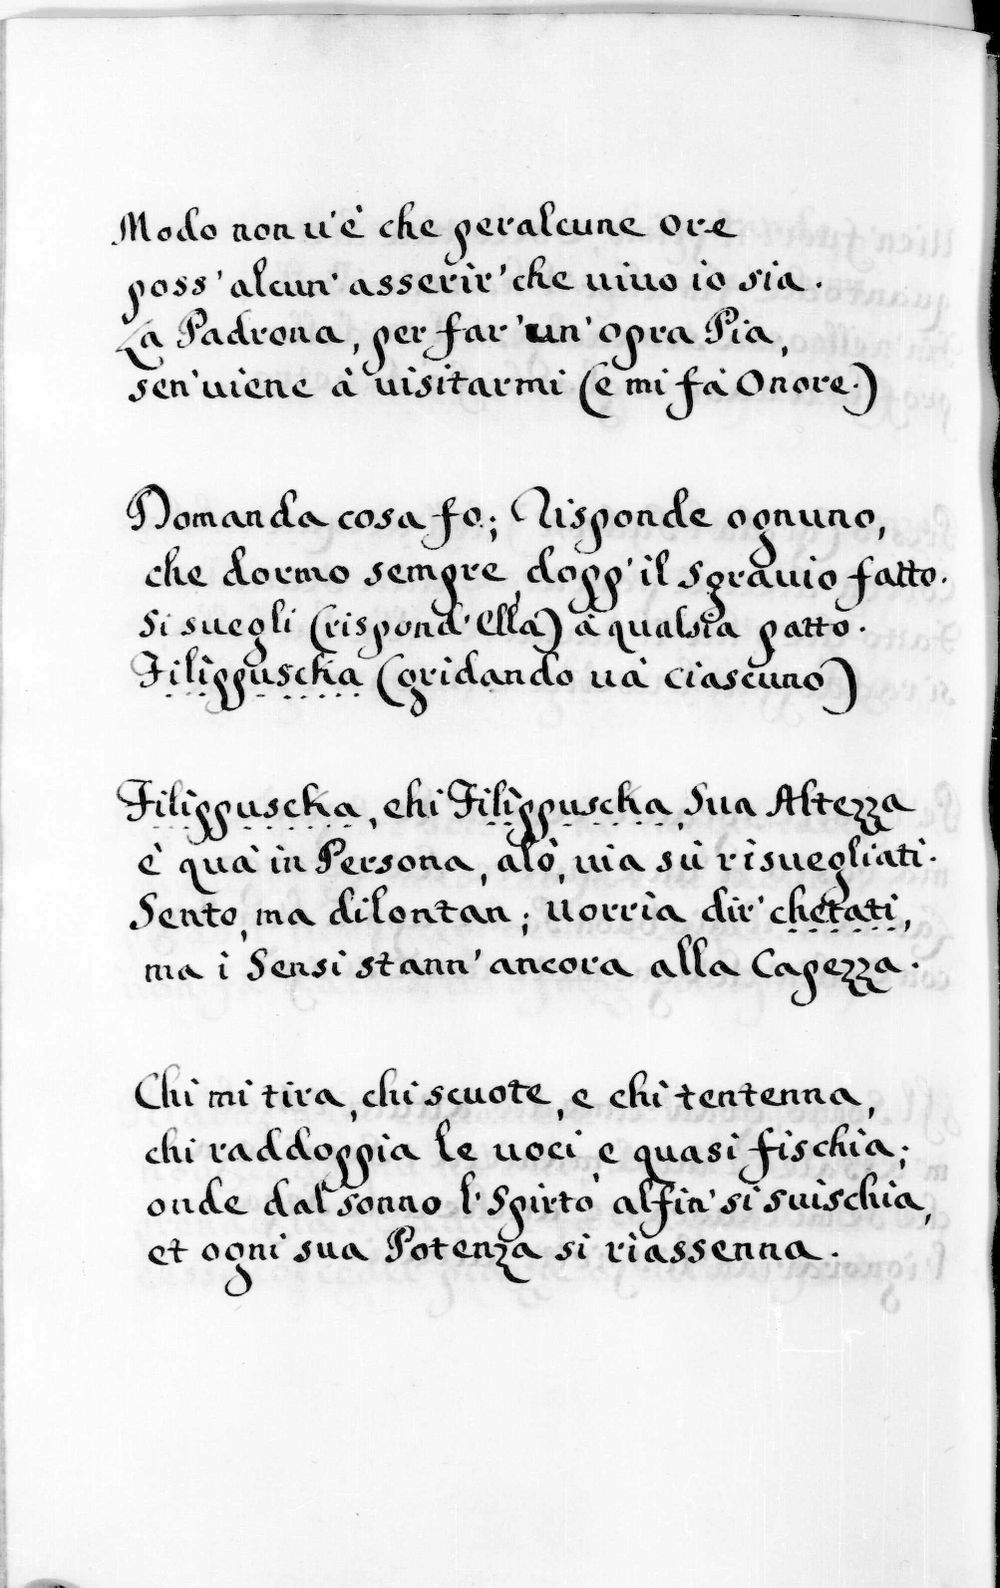 Modo non u'è che per alcune ore
poss' alcun' asserir' che uiuo io sia.
La Padrona, per far' un' opra Pia,
sen' uiene à uisitarmi (e mi fà Onore.)
Domanda cosa fo; Risponde ognuno,
che dormo sempre, dopp' il sgrauio fatto.
Si suegli (rispond' Ella) à qualsia patto.
Filippuscka (gridando uà ciascuno)
Filippuscka, ehi Filippuscka, Sua Altezza
è quà in Persona, alò, uia sù risuegliati.
Sento, ma di lontan; uorria dir' chetati,
ma i Sensi stann' ancora alla Capezza.
Chi mi tira, chi scuote, e chi tentenna,
chi raddoppia le uoci e quasi fischia;
onde dal sonno l' Spirto alfin' si suischia,
et ogni sua Potenza si riassenna.